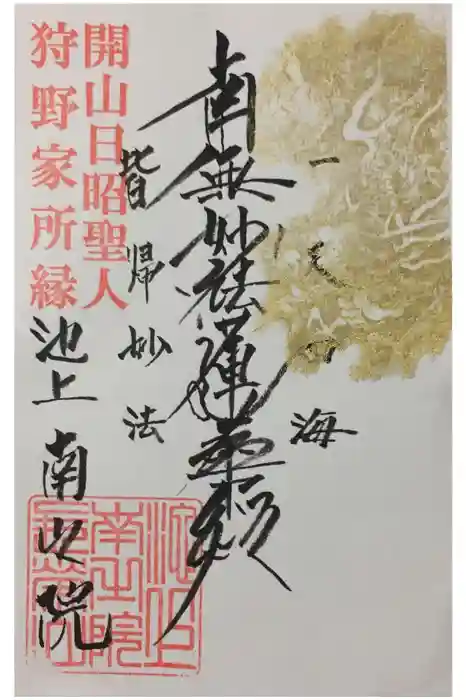 一天四海
南無妙法蓮華經
皆帰妙法
開山日昭聖人
狩野家所縁
池上 南之院